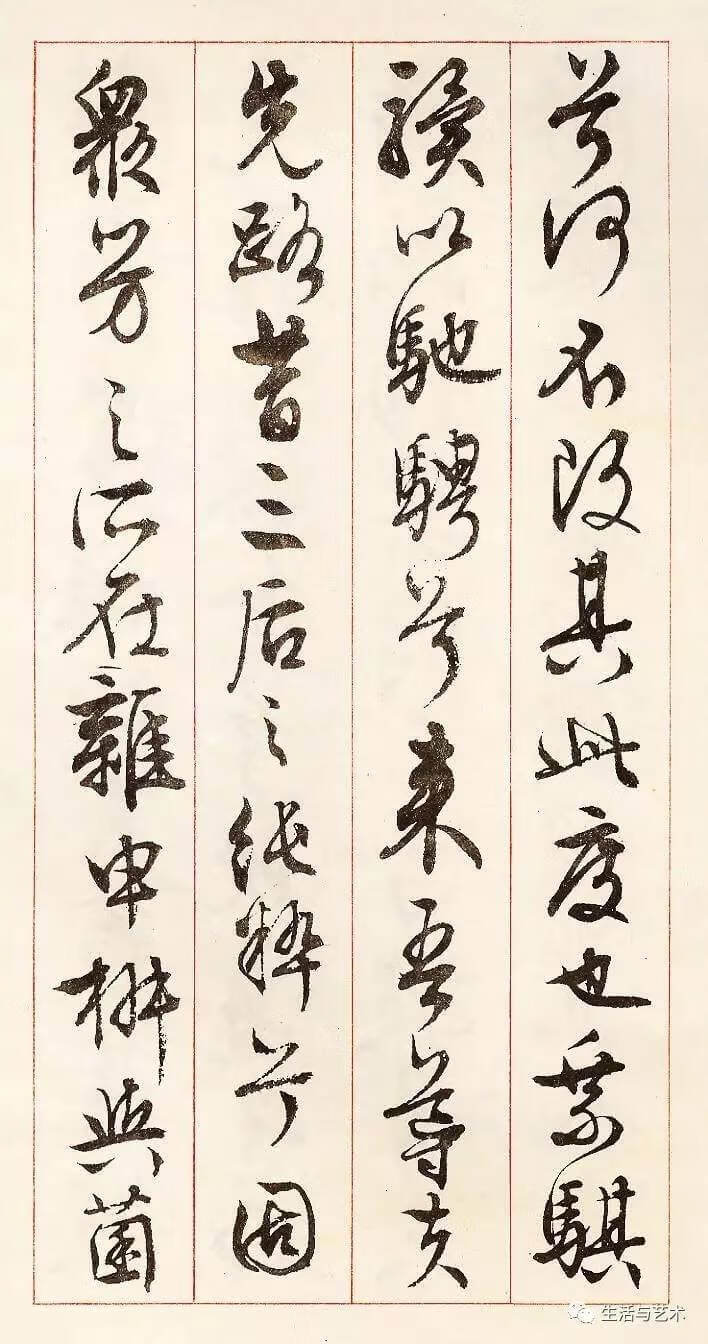 兮何不改其此度也乘騏
驥以馳騁兮来吾導夫
先路昔三后之純粹兮固
衆芳之所在雜申椒與菌
生活与艺术